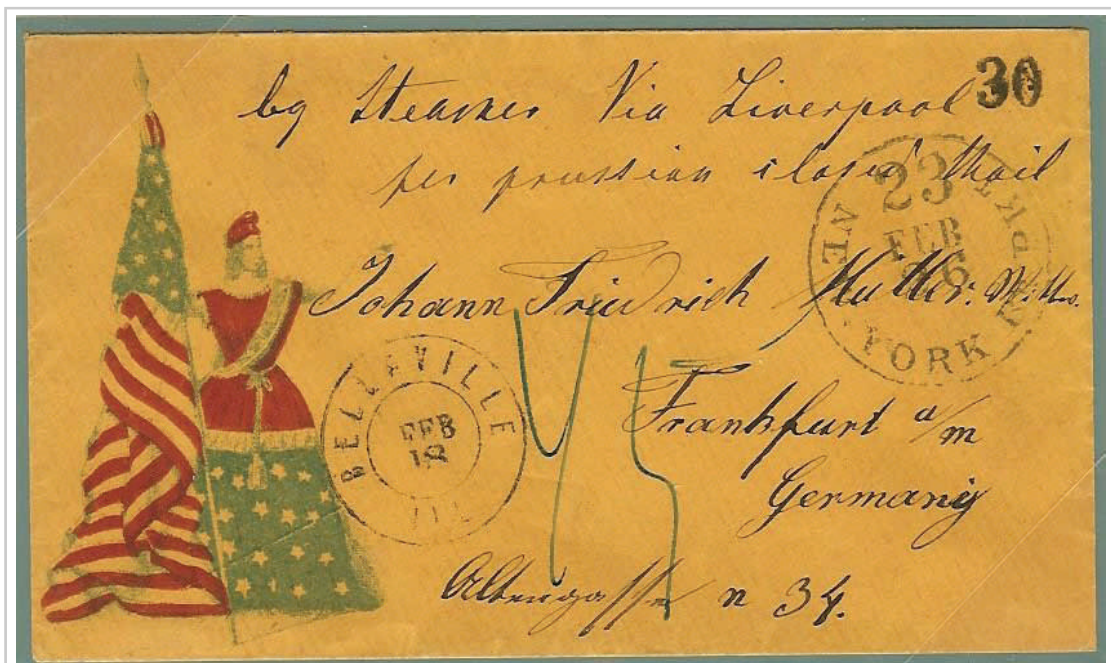 30
by Steamer Via Liverpool
per prussian closed Mail
23
FEB
26
NEW YORK PKT
Johann Friedrich Müller
BELLEVILLE
FEB
18
ILL
45
Frankfurt a/m
Germany
Altengasse n 34.